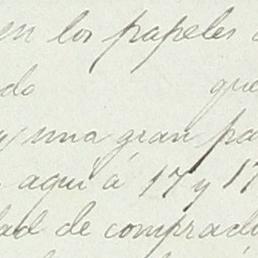 en los papeles
do que
y una gran pa
aquí á 17 y 17
dad de comprado